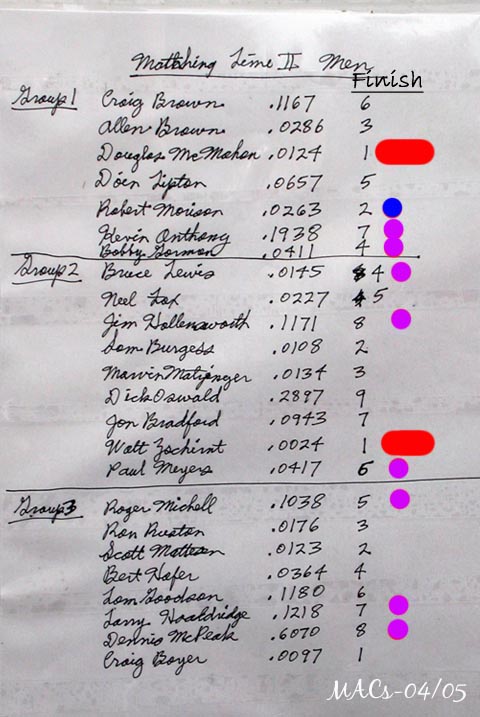 Matching Time II Men
Finish
Group 1 Craig Brown .1167 6
Allen Brown .0286 3
Douglas McMahon .0124 1
Doen Lipton .0657 5
Robert Morison .0263 2
Kevin Anthony .1938 7
Bobby Gorman .0411 4
Group 2 Bruce Lewis .0145 4
Neel Fox .0227 5
Jim Hollensworth .1171 8
Tom Burgess .0108 2
Marvin .0134 3
Dick Oswald .2897 9
Jon Bradford .0943 7
Walt .0024 1
Paul Meyers .0417 6
Group 3 Roger Michell .1038 5
Ron Ruston .0176 3
Scott Matteson .0123 2
Bert Hofer .0364 4
Tom Goodson .1180 6
Larry .1218 7
Dennis McPeak .6070 8
Craig Boyer .0097 1
MACs-04/05